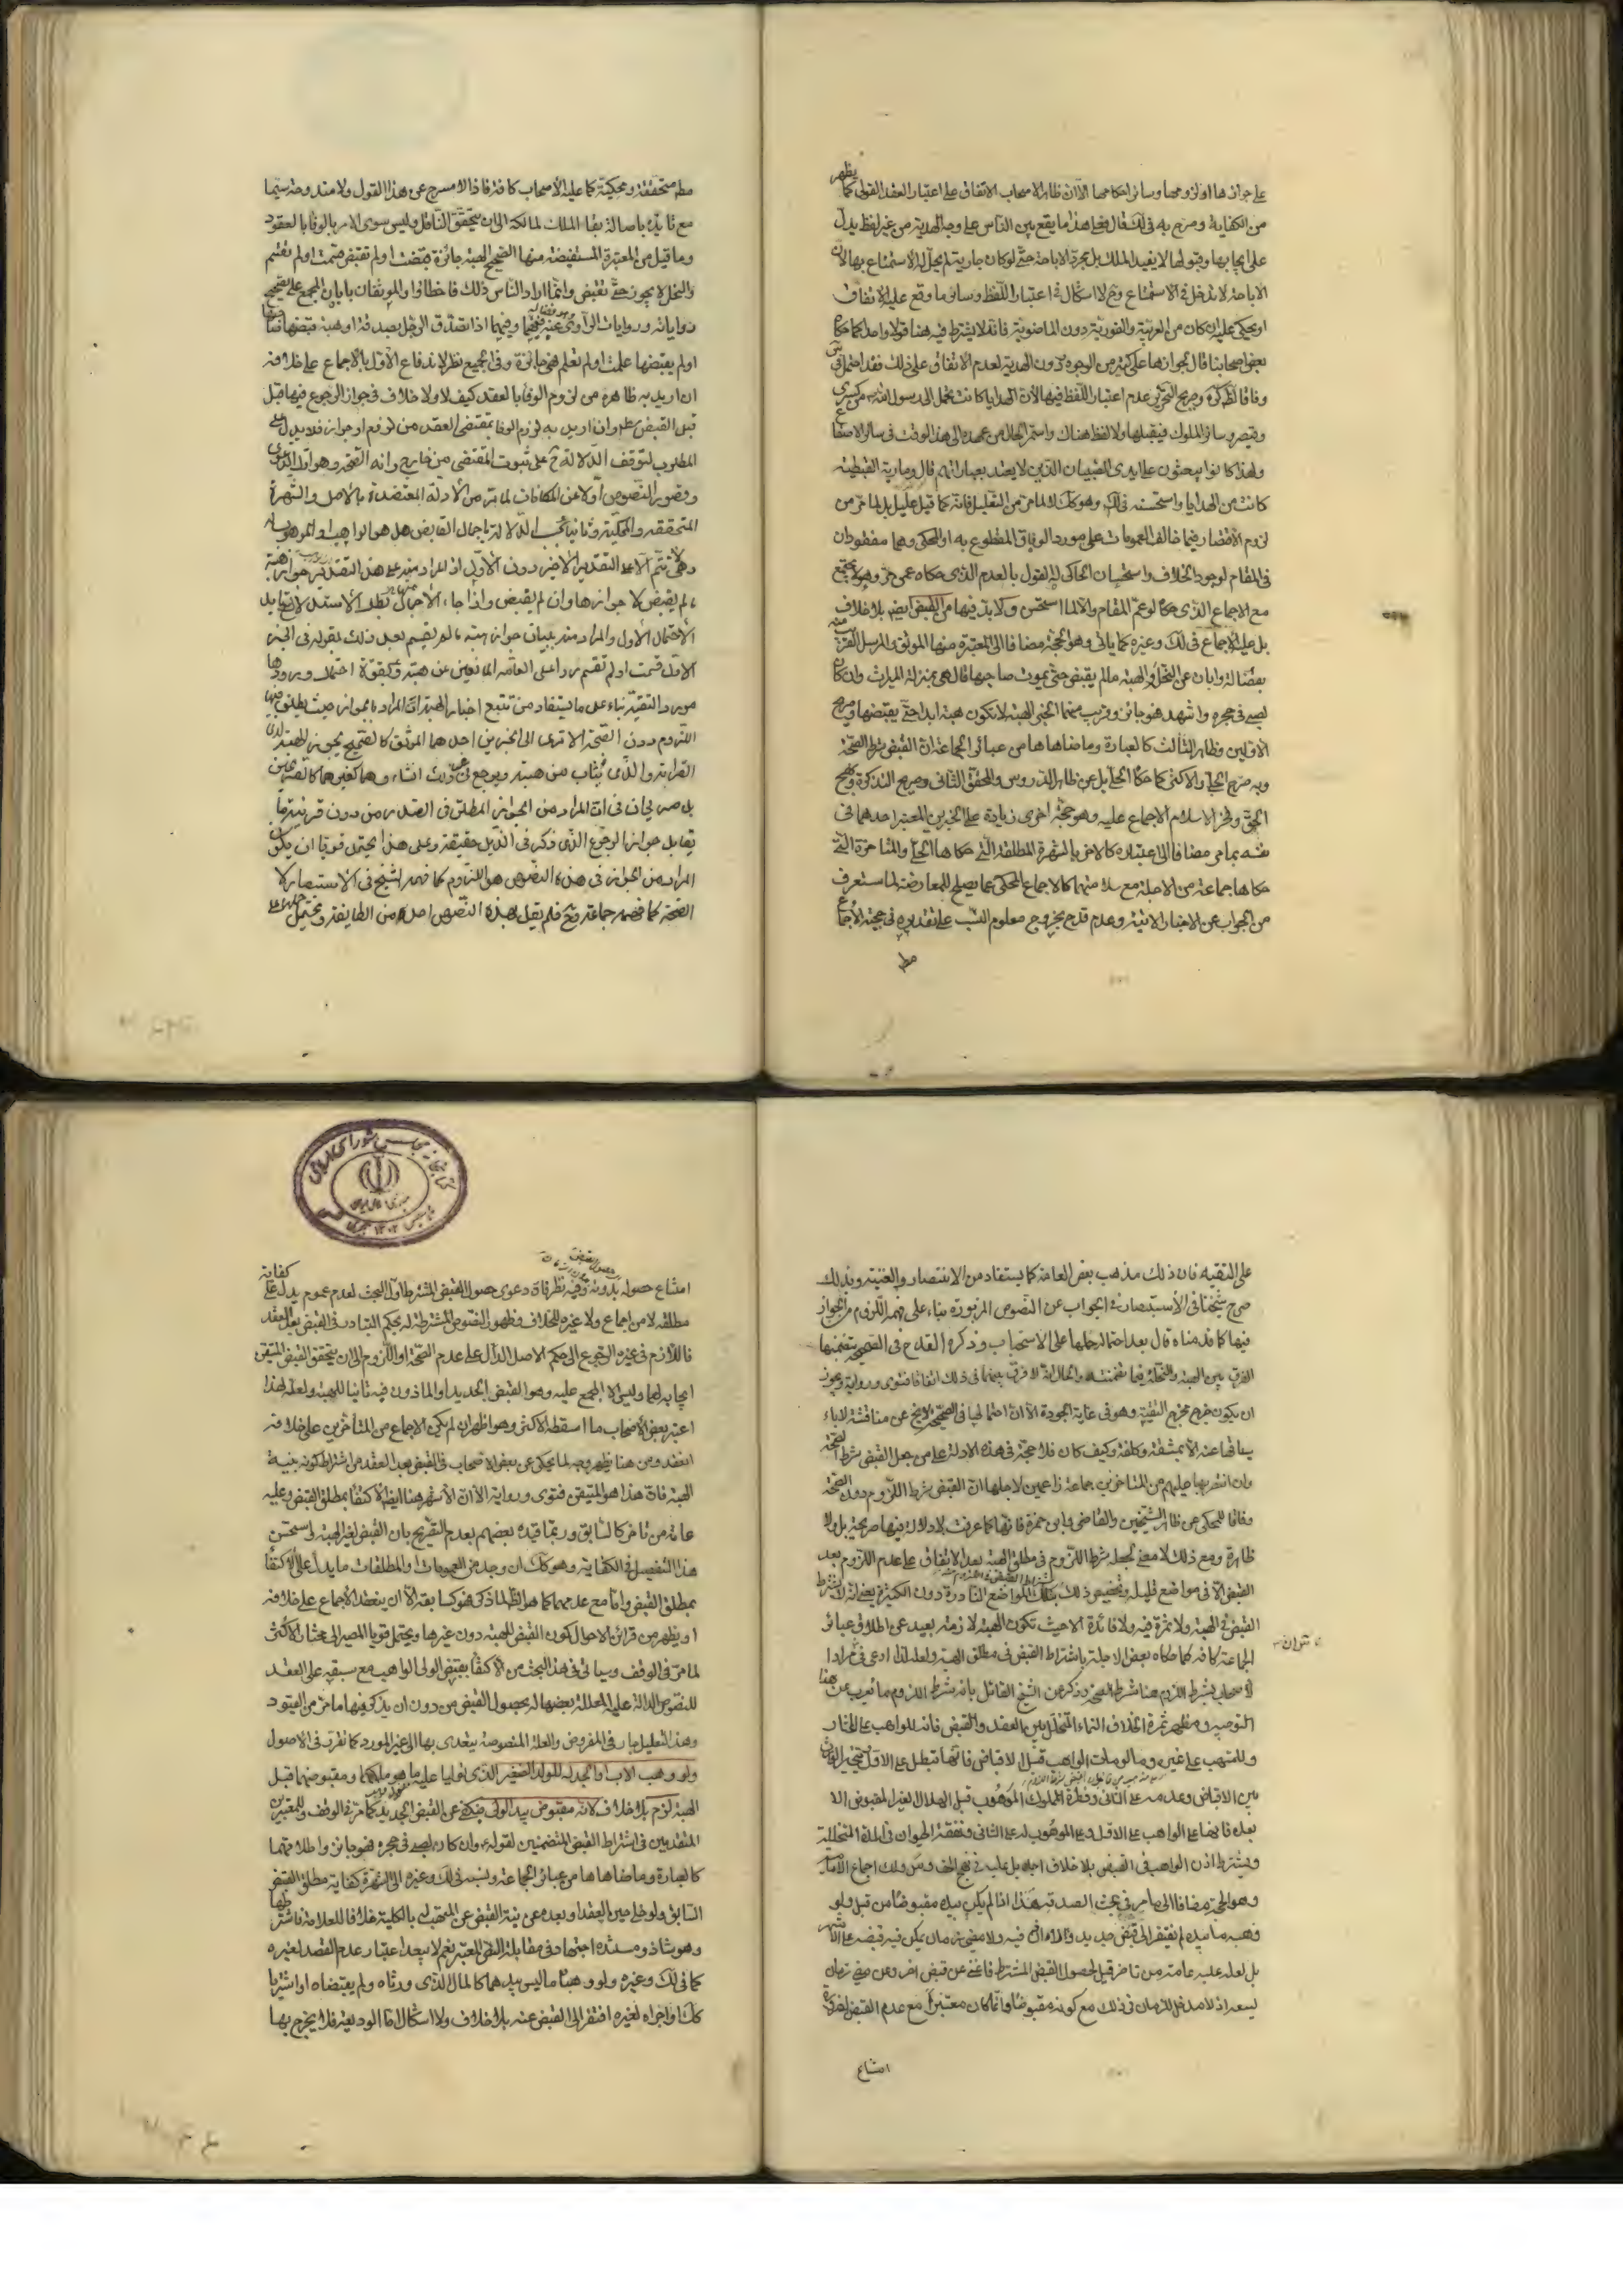 على جوازها او لزومها وسائر احكامها الا ان ظاهر الاصحاب الاتفاق على اعتبار العقد القولى كما يظهر
من الكفاية وصرح به فى لك قال فعلى هذا ما يقع بين الناس على وجه الهدية من غير لفظ يدل
على ايجابها وقبولها لا يفيد الملك بل مجرد الاباحة حتى لو كانت جارية لم يحل له الاستمتاع بها لان
الاباحة لا تدخل فى الاستمتاع ولا اشكال فى اعتبار اللفظ وسائر ما وقع عليه الاتفاق
او يحكى عليه ان كان من العربية والفورية دون الماضوية فانه لا يشترط فيه هنا قولا واحدا كما حكاه
بعض اصحابنا قال بجوازها على كثير من الوجوه دون الهدية لعدم الاتفاق على ذلك فقد احتمل فى س
وفاقا لظ كره وصريح التحرير عدم اعتبار اللفظ فيها لان الهدايا كانت تحمل الى رسول الله من كسرى
وقيصر وسائر الملوك فيقبلها ولا لفظ هناك واستمر الحال من عهده الى هذا الوقت فى سائر الاصقاع
ولهذا كانوا يبعثون على ايدى الصبيان الذين لا يعتد بعباراتهم قال ومارية القبطية
كانت من الهدايا واستحسنه فى لك وهو كك لا لما مر من التعليل فانه كما قيل عليل بل لما مر من
لزوم الاقتصار فيما خالف العمومات على مورد الوفاق المقطوع به او المحكى وهما مفقودان
فى المقام لوجود الخلاف واستحسان الحاكى له القول بالعدم الذى حكاه عمن مر وهو لا يجتمع
مع الاجماع الذى حكاه لو عم المقام والا لما استحسن ولا بد فيها من القبض ايضا بلا خلاف
بل عليه الاجماع فى لك وغيره كما ياتى وهو الحجة مضافا الى المعتبرة منها الموثق والمرسل القريب منه
بفضالة وابان عن النحل والهبة ما لم يقبض حتى يموت صاحبها قال هى بمنزلة الميراث وان كان
لصبى فى حجره واشهد فهو جائز وقريب منهما الخبر الهبة لا تكون هبة ابدا حتى يقبضها وصريح
الاولين وظاهر الثالث كالعبارة وما ضاهاها من عبائر الجماعة ان القبض شرط الصحة
وبه صرح الحلى والاكثر كما حكاه الحلى بل عن ظاهر الدروس والمحقق الثانى وصريح التذكرة ونهج
الحق وفخر الاسلام الاجماع عليه وهو حجة اخرى زيادة على الخبرين المعتبر احدهما فى
نفسه بما مر مضافا الى اعتباره كالاخر بالشهرة المطلقة التى حكاها الحلى والمتاخرة التى
حكاها جماعة من الاجلة مع سلامتهما كالاجماع المحكى عما يصلح للمعارضة لما ستعرف
من الجواب عن الاخبار الاتية وعدم قدح بخروج معلوم النسب على تقديره فى حجية الاجماع
مط
مط متحققة ومحكية كما عليه الاصحاب كافة فاذا لا مسرح عن هذا القول ولا مندوحة سيما
مع تايده باصالة بقاء الملك لمالكه الى ان يتحقق الناقل وليس سوى الامر بالوفاء بالعقود
وما قيل من المعتبرة المستفيضة منها الصحيح الهبة جائزة قبضت او لم تقبض قسمت او لم تقسم
والنحل لا يجوز حتى تقبض وانما اراد الناس ذلك فاخطاوا والموثقان بابان المجمع على تصحيح
رواياته وفيهما اذا تصدق الرجل بصدقة او هبة قبضها صاحبها
او لم يقبضها علمت او لم تعلم فهى جائزة وفى الجميع نظر لاندفاع الاول بالاجماع على خلافه
ان اريد به ظاهره من لزوم الوفاء بالعقد كيف لا ولا خلاف فى جواز الرجوع فيها قبل
قبل القبض مط وان اريد به لزوم الوفاء بمقتضى العقد من لزوم او جواز فلا يدل على
المطلوب لتوقف الدلالة ح على ثبوت المقتضى من خارج وانه الصحة وهو اول الدعوى
وقصور النصوص اولا عن المكافات لما مر من الادلة المعتضدة بالاصل والشهرة
المتحققة والمحكية وثانيا بحسب الدلالة باجمال القابض هل هو الواهب او الموهوب له
وهى لا تتم الا على التقدير الاخير دون الاول اذ المراد منه على هذا التقدير جواز هبة
ما لم يقبض لا جوازها وان لم يقبض واذا جاء الاجمال بطل الاستدلال
الاحتمال الاول والمراد منه بيان جواز هبة ما لم يقسم بعد ذلك بقوله فى الخبر
الاول قسمت او لم تقسم ردا على العامة المانعين عن هبته وكقوة احتمال ورودها
مورد التقية بناء على ما يستفاد من تتبع اخبار الهبة ان المراد بالجواز حيث يطلق فيها
اللزوم دون الصحة الا ترى الى الخبرين احدهما الموثق كالصحيح تجوز الهبة لذى
القرابة والذى يثاب من هبته ويرجع فى غير ذلك ان شاء وهما كغيرهما
بل صريحان فى ان المراد من الجواز المطلق فى الصدر من دون قرينة ما
يقابل جواز الرجوع الذى ذكر فى الذيل حقيقة وعلى هذا يحتمل قويا ان يكون
المراد من الجواز فى هذه النصوص هو اللزوم كما فهمه الشيخ فى الاستبصار لا
الصحة كما فهمه جماعة وح فلم يقل بهذه النصوص احد من الطايفة ويحتمل حملها على
على التقية فان ذلك مذهب بعض العامة كما يستفاد من الانتصار والغنية وبذلك
صرح شيخنا فى الاستبصار فى الجواب عن النصوص المزبورة بناء على فهمه اللزوم من الجواز
فيها كما قدمناه قال بعد احتماله حملها على الاستحباب وذكره القدح فى الصحيحة بتضمنها
الفرق بين الهبة والنحلة فيما تضمنته والحال انه لا فرق بينهما فى ذلك اتفاقا فتوى ورواية ويجوز
ان يكون خرج مخرج التقية وهو فى غاية الجودة الا ان احتمالها فى الصحيحة لا يخ عن مناقشة لاباء
سياقها عنه الا بمشقة وكلفة وكيف كان فلا حجة فى هذه الادلة على من جعل القبض شرط الصحة
وان انتصر بها عليهم من المتاخرين جماعة زاعمين لاجلها ان القبض شرط اللزوم دون الصحة
وفاقا للمحكى عن ظاهر الشيخين والقاضى وابن حمزة فانها كما عرفت لا دلالة فيها صريحة بل ولا
ظاهرة ومع ذلك لا معنى لجعله شرط اللزوم فى مطلق الهبة بعد الاتفاق على عدم اللزوم بعد
القبض الا فى مواضع قليلة وتخصيص ذلك بتلك المواضع النادرة دون الكثيرة يعنى انه لا يشترط
القبض فى الهبة ولا ثمرة فيه ولا فائدة الا حيث تكون الهبة لازمة بعيد عن اطلاق عبائر
الجماعة كافة كما حكاه بعض الاجلة باشتراط القبض فى مطلق الهبة ولعله لذا ادعى فى س مرادا
لاصحاب بشرط اللزوم هنا شرط الصحة وذكر عن الشيخ القائل بانه شرط اللزوم ما يعرب عن هذا
التوجيه ومظهر ثمرة الخلاف النماء المتخلل بين العقد والقبض فانه للواهب على المختار
وللمتهب على غيره وما لو مات الواهب قبل الاقباض فانها تبطل على الاول ويتخير الوارث
بين الاقباض وعدمه على الثانى وفطرة المملوك الموهوب قبل الهلال لغير المقبوض الا
بعده فانها على الواهب على الاول وعلى الموهوب له على الثانى ونفقة الحيوان فى المدة المتخللة
ويشترط اذن الواهب فى القبض بلا خلاف اجده بل عليه فى نهج الحق وس ولك اجماع الامامية
وهو الحجة مضافا الى ما مر فى بحث الصدقة هذا اذا لم يكن بيده مقبوضا من قبل ولو
وهبه ما بيده لم يفتقر الى قبض جديد ولا اذن فيه ولا مضى زمان يمكن فيه قبضه على الاشهر
بل لعله عليه عامة من تاخر قيل لحصول القبض المشترط فاغنى عن قبض اخر وعن مضى زمان
يسعه اذ لا مدخل للزمان فى ذلك مع كونه مقبوضا وانما كان معتبرا مع عدم القبض لضرورة
امتناع
امتناع حصوله بدونه وفيه نظر فان دعوى حصول القبض المشترط اول البحث لعدم عموم يدل على كفاية
مطلقه لا من اجماع ولا غيره للخلاف وظهور النصوص المشترطة له بحكم التبادر فى القبض بعد العقد
فاللازم فى غيره الرجوع الى حكم الاصل الدال على عدم الصحة او اللزوم الى ان يتحقق القبض المتيقن
ايجابه لهما وليس الا المجمع عليه وهو القبض الجديد او الماذون فيه ثانيا للهبة ولعله لهذا
اعتبر بعض الاصحاب ما اسقطه الاكثر وهو اظهر ان لم يكن الاجماع من المتاخرين على خلافه
انعقد ومن هنا يظهر وجه لما يحكى عن بعض الاصحاب فى القبض بعد العقد من اشتراط كونه بنية
الهبة فان هذا هو المتيقن فتوى ورواية الا ان الاشهر هنا ايضا الاكتفاء بمطلق القبض وعليه
عامة من تاخر كالسابق وربما قيده بعضهم بعدم التصريح بان القبض لغير الهبة واستحسن
هذا التفصيل فى الكفاية وهو كك ان وجد من العمومات او المطلقات ما يدل على الاكتفاء
بمطلق القبض واما مع عدمهما كما هو الظاهر لما ذكر فهو كسابقه الا ان ينعقد الاجماع على خلافه
او يظهر من قرائن الاحوال كون القبض للهبة دون غيرها ويحتمل قويا المصير الى مختار الاكثر
لما مر فى الوقف وسياتى فى هذا البحث من الاكتفاء بقبض الولى الواهب مع سبقه على العقد
للنصوص الدالة عليه المعللة بعضها له بحصول القبض من دون ان يذكر فيها ما مر من القيود
وهذا التعليل جار فى المفروض والعلة المنصوصة يتعدى بها الى غير المورد كما تقرر فى الاصول
ولو وهب الاب او الجد له للولد الصغير الذى لهما الولاية عليه ما هو ملكهما ومقبوضهما قبل
الهبة لزم بلا خلاف لانه مقبوض بيد الولى فيكفى عن القبض الجديد كما مر فى الوقف وللمعتبرين
المتقدمين فى اشتراط القبض المتضمنين لقوله ع وان كان لصبى فى حجره فهو جائز واطلاقهما
كالعبارة وما ضاهاها من عبائر الجماعة ونسبه فى لك وغيره الى الشهرة كفاية مطلق القبض
السابق ولو خلى حين العقد او بعده عن نية القبض عن المتهب له بالكلية خلافا للعلامة فاشترطها
وهو شاذ ومستنده اجتهاد فى مقابلة النص المعتبر نعم لا يبعد اعتبار عدم القصد لغيره
كما فى لك وغيره ولو وهبا ما ليس بيدهما كالمال الذى ورثاه ولم يقبضاه او اشتريا
كك او اجراه لغيره افتقر الى القبض عنه بلا خلاف ولا اشكال اما الوديعة فلا يخرج بها